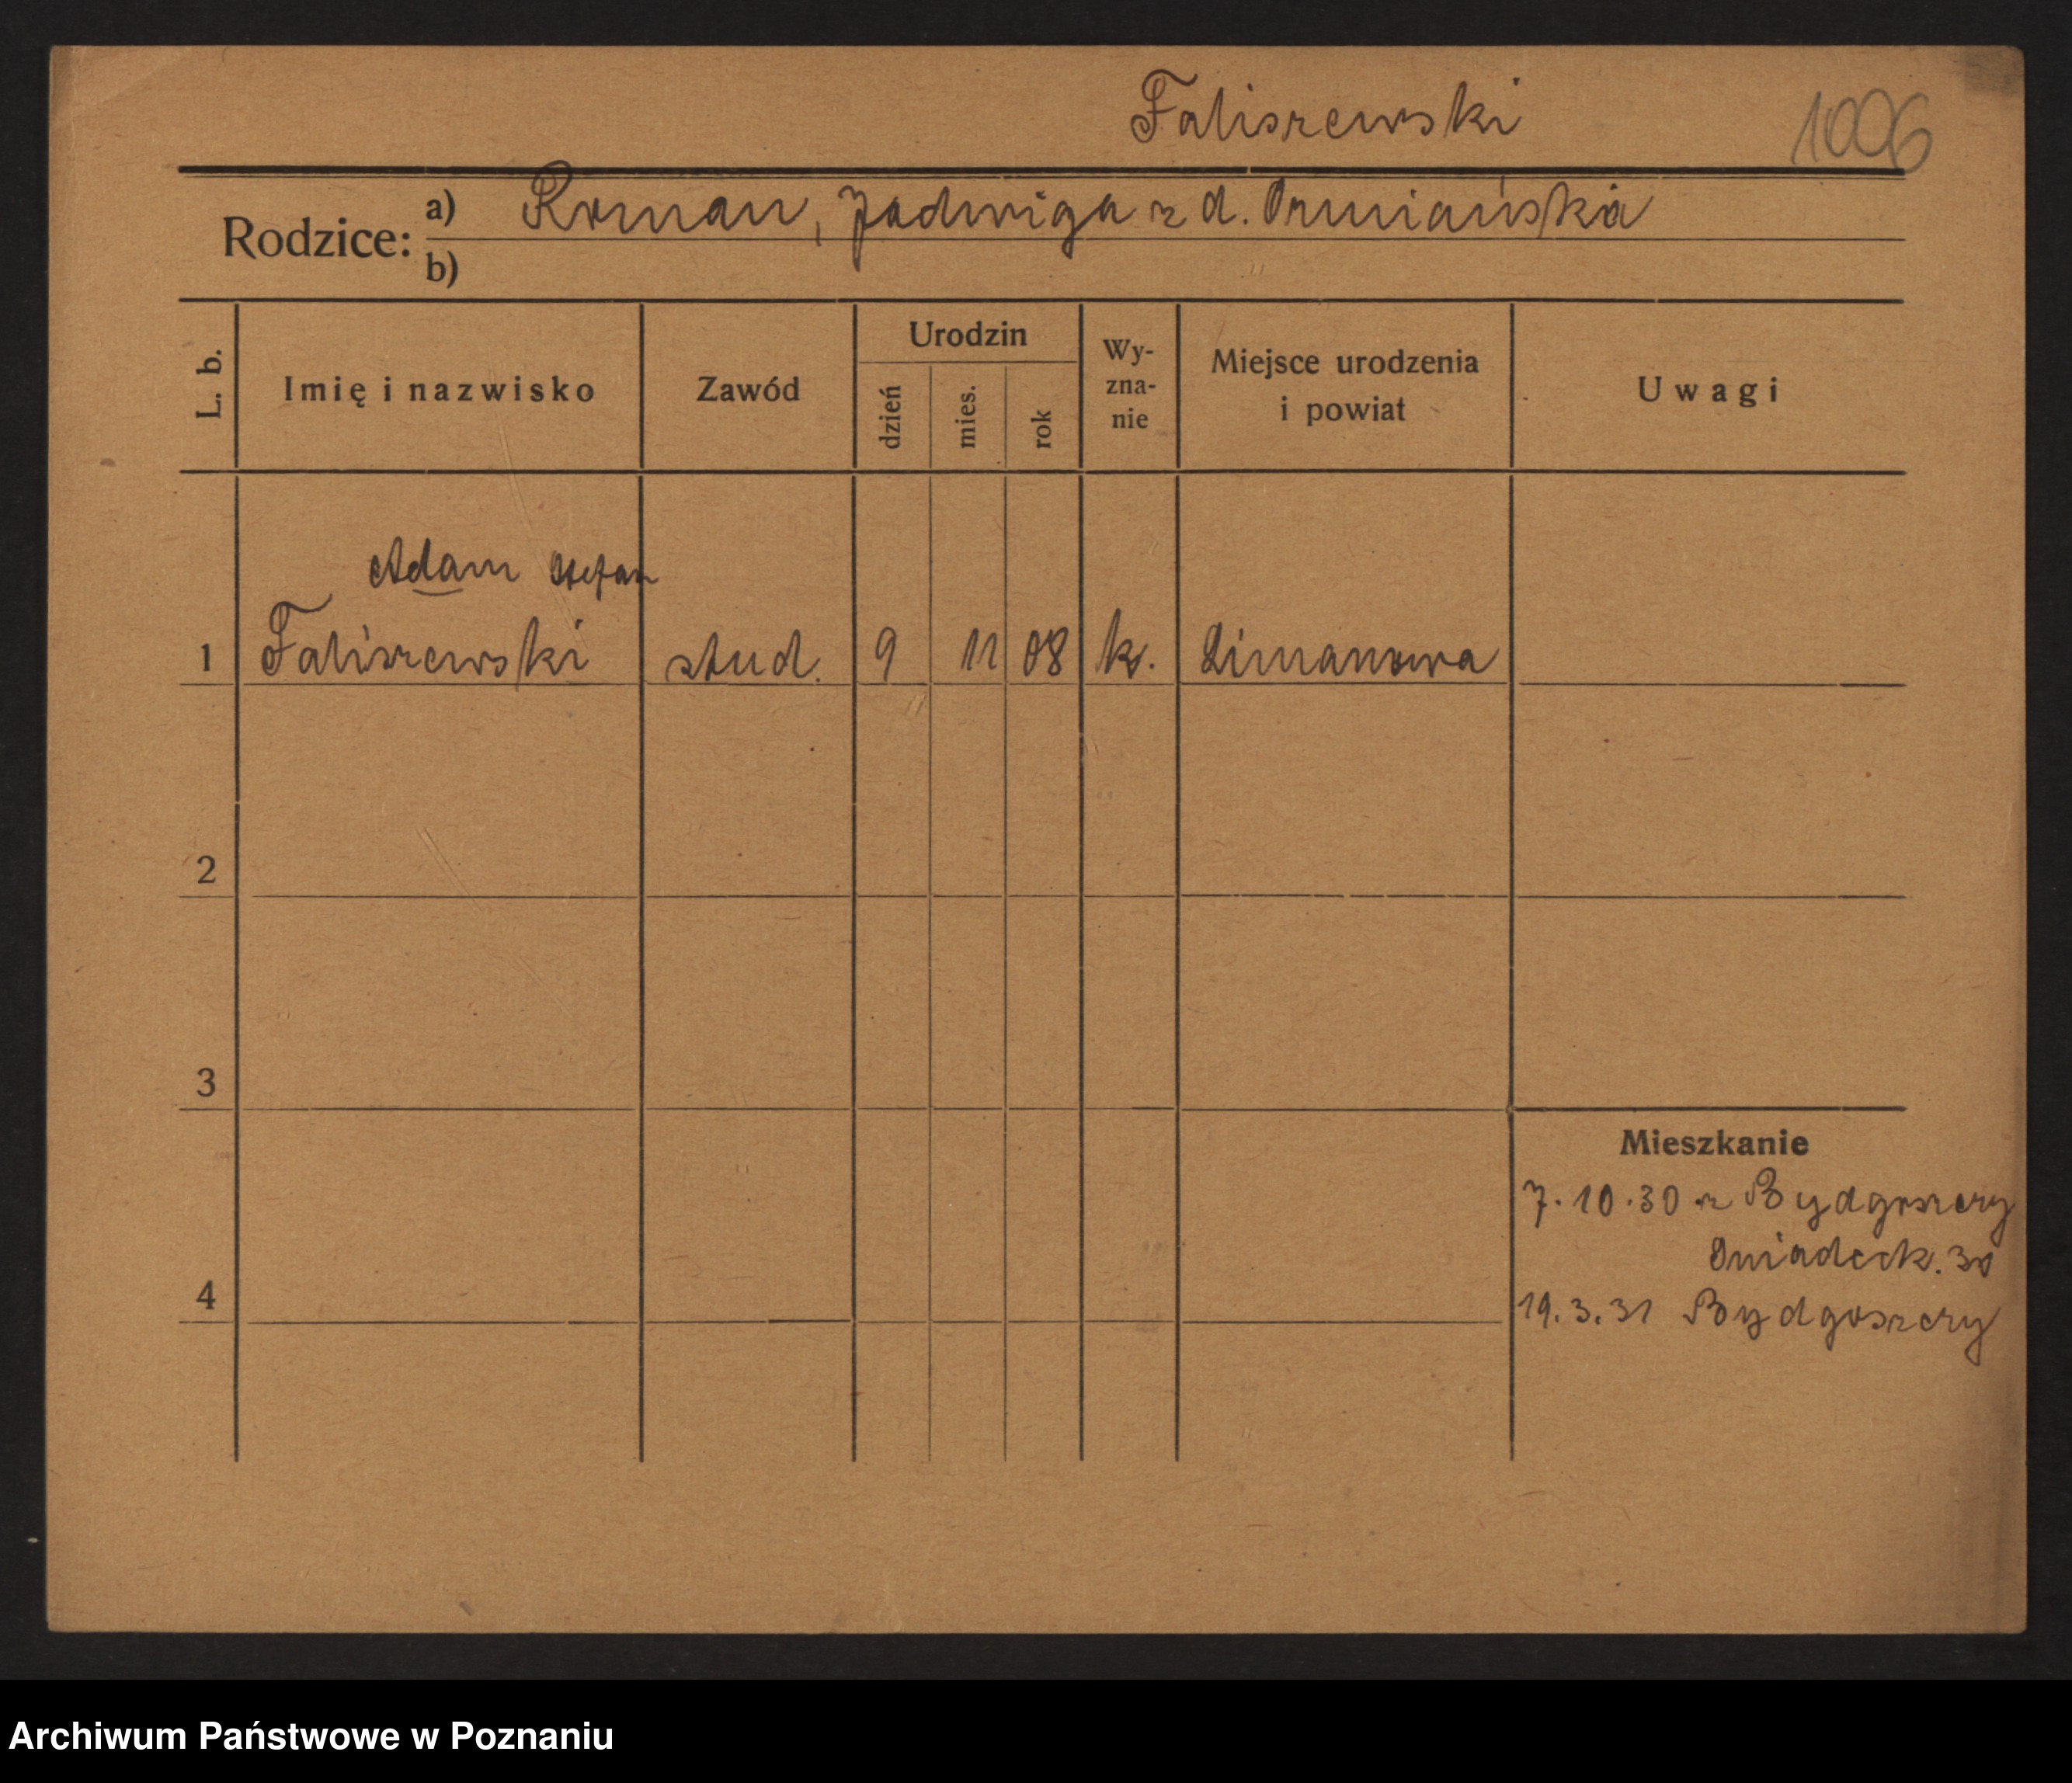 Faliszewski 1006
Rodzice: a) Roman, Jadwiga z d. Ormiańska
b)
L. b. Imię i nazwisko Zawód Urodzin dzień mies. rok Wy-zna-nie Miejsce urodzenia i powiat Uwagi
Adam Stefan
1 Faliszewski stud. 9 11 08 k. Limanowa
2
3
Mieszkanie
7.10.30 z Bydgoszczy
Śniadeck. 30
4
19.3.31 Bydgoszczy
Archiwum Państwowe w Poznaniu